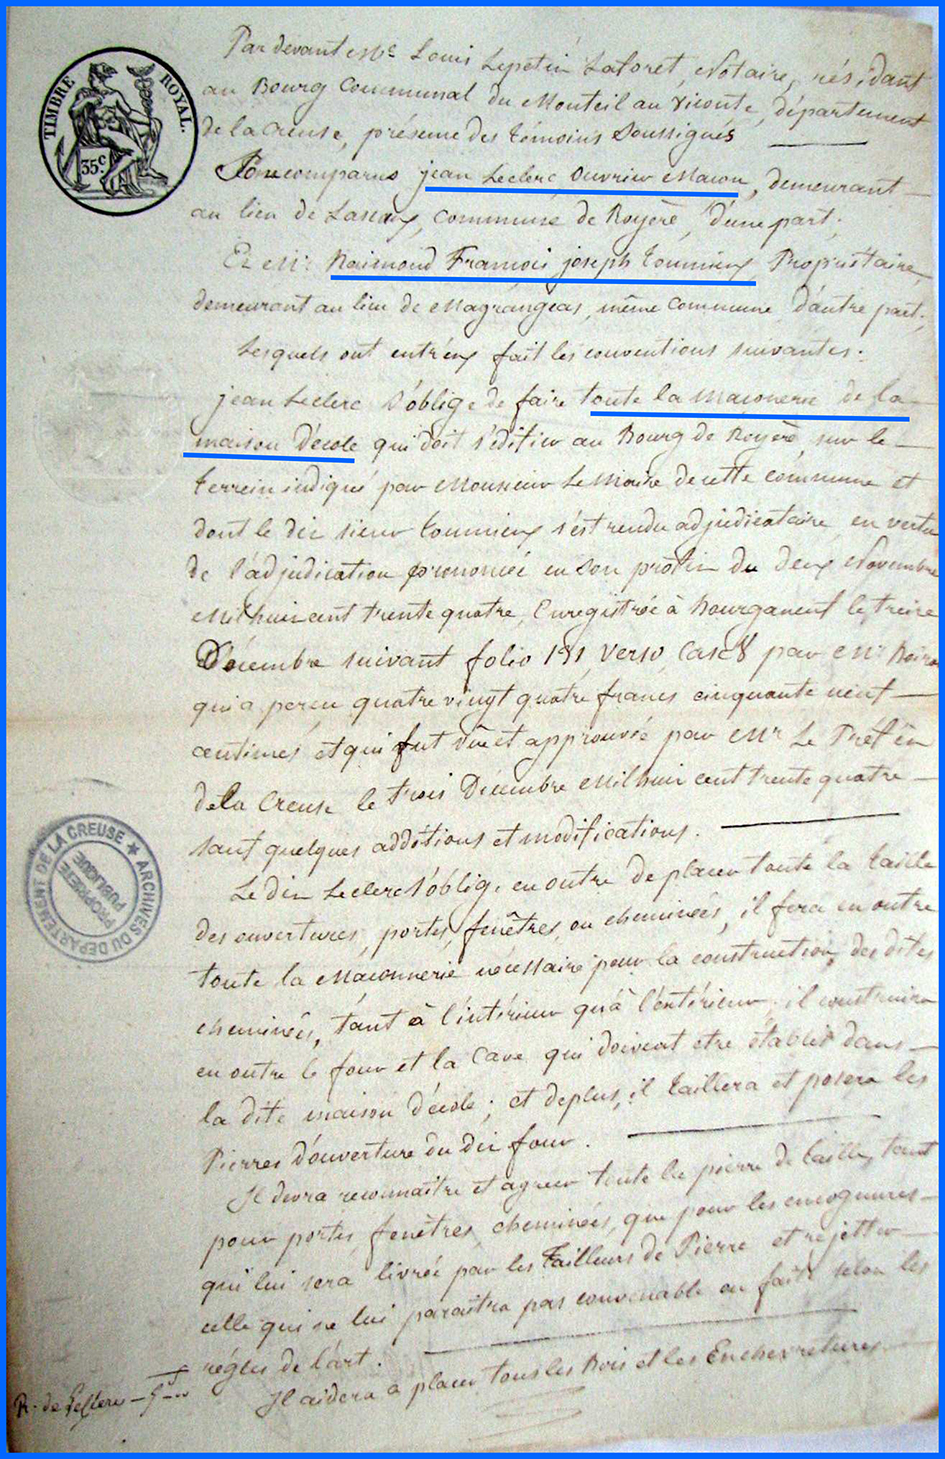 TIMBRE ROYAL.
35c
Par devant Me Louis Lepetit Laforet, Notaire, résidant
au Bourg Communal du Monteil au Vicomte, département
de la Creuse, présence des témoins Soussignés
comparus jean Leclerc, Ouvrier Maçon, demeurant
au lieu de , Commune de Royere, d'une part;
Et Mr. Raimond François joseph Toumieux Propriétaire,
demeurant au lieu de Magrangeas, même Commune d'autre part.
Lesquels ont entr'eux fait les conventions suivantes.
jean Leclerc s'oblige de faire toute la maçonerie de la
maison d'école qui doit s'édifier au Bourg de Royere, sur le
terrein indiqué par Monsieur Le Maire de cette commune et
dont le dit sieur Toumieux s'est rendu adjudicataire en vertu
de l'adjudication prononcée en son profit du deux Novembre
Mil huit cent trente quatre, Enregistrée à Bourganeuf le treize
Décembre suivant folio 131 verso, Case 8 par Mr.
qui a perçu quatre vingt quatre francs cinquante neuf
centimes et qui fut vue et approuvée par Mr Le Préfet
de la Creuse le trois Décembre Mil huit cent trente quatre
sauf quelques additions et modifications.
Le dit Leclerc s'oblige en outre de placer toute la taille
des ouvertures, portes, fenêtres, ou cheminées, il fera en outre
toute la Maçonnerie nécessaire pour la construction des dites
cheminées, tant à l'intérieur qu'à l'extérieur; il construira
en outre le four et la Cave qui doivent etre établit dans
la dite maison d'école; et deplus, il taillera et posera les
Pierres d'ouverture du dit four.
Il devra reconnaître et agréer toute la pierre de taille, tant
pour portes, fenêtres, cheminées, que pour les encognures
qui lui sera livrée par les Tailleurs de Pierre et rejetter
celle qui ne lui paraîtra pas convenable ou faite selon les
régles de l'art.
Il aidera a placer tous les Bois et les Enchevretures
R. de
ARCHIVES DU DEPARTEMENT DE LA CREUSE
PROPRIETE PUBLIQUE